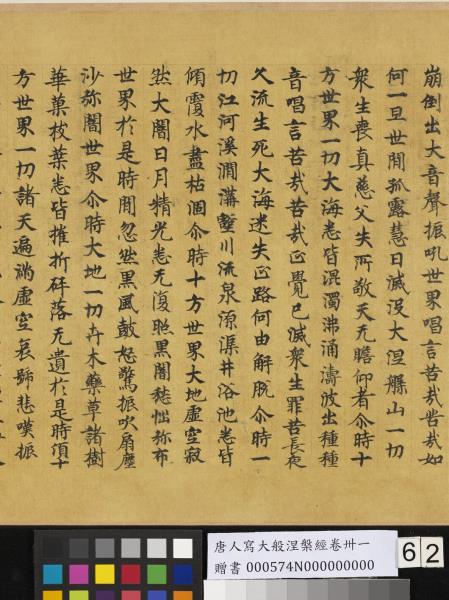 崩倒出大音聲振吼世界唱言苦哉苦哉如
何一旦世間孤露慧日滅沒大涅槃山一切
衆生喪真慈父失所敬天无瞻仰者尒時十
方世界一切大海悉皆混濁沸涌濤波出種種
音唱言苦哉苦哉正覺已滅衆生罪苦長夜
久流生死大海迷失正路何由解脫尒時一
切江河溪澗溝壑川流泉源渠井浴池悉皆
傾覆水盡枯涸尒時十方世界大地虛空寂
然大闇日月精光悉无復照黑闇愁惱弥布
世界於是時間忽然黑風鼓怒驚振吹扇塵
沙弥闇世界尒時大地一切卉木藥草諸樹
華菓枝葉悉皆摧折碎落无遺於是時頃十
方世界一切諸天遍滿虛空哀號悲嘆振
唐人寫大般涅槃經卷卅一
贈書 000574N000000000
62